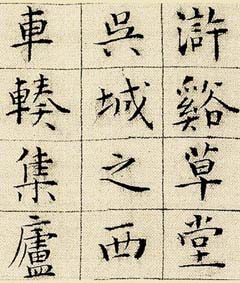 滸谿草堂
吳城之西
車輳集廬